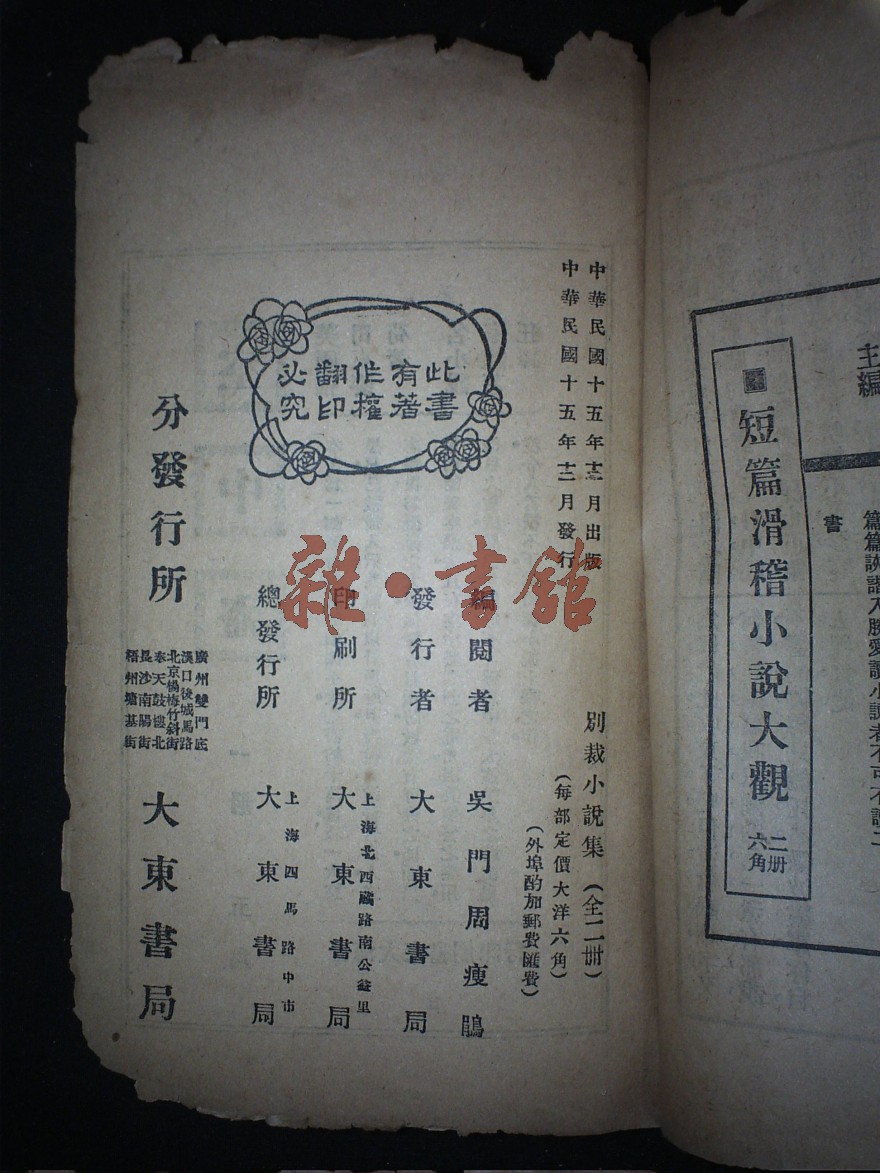 主編
短篇滑稽小說大觀
二册
六角
書
篇篇詼諧入勝愛讀小說者不可不讀二
中華民國十五年十二月出版
中華民國十五年十二月發行
別裁小說集（全二册）
（每部定價大洋六角）
（外埠酌加郵費匯費）
此書
有著
作權
翻印
必究
編閱者 吳門周瘦鵑
發行者 大東書局
印刷所 上海北西藏路南公益里 大東書局
總發行所 上海四馬路中市 大東書局
分發行所
廣州雙門底
漢口後城馬路
北京楊梅竹斜街
奉天鼓樓北
長沙南陽街
梧州塘基街
大東書局
雜·書館